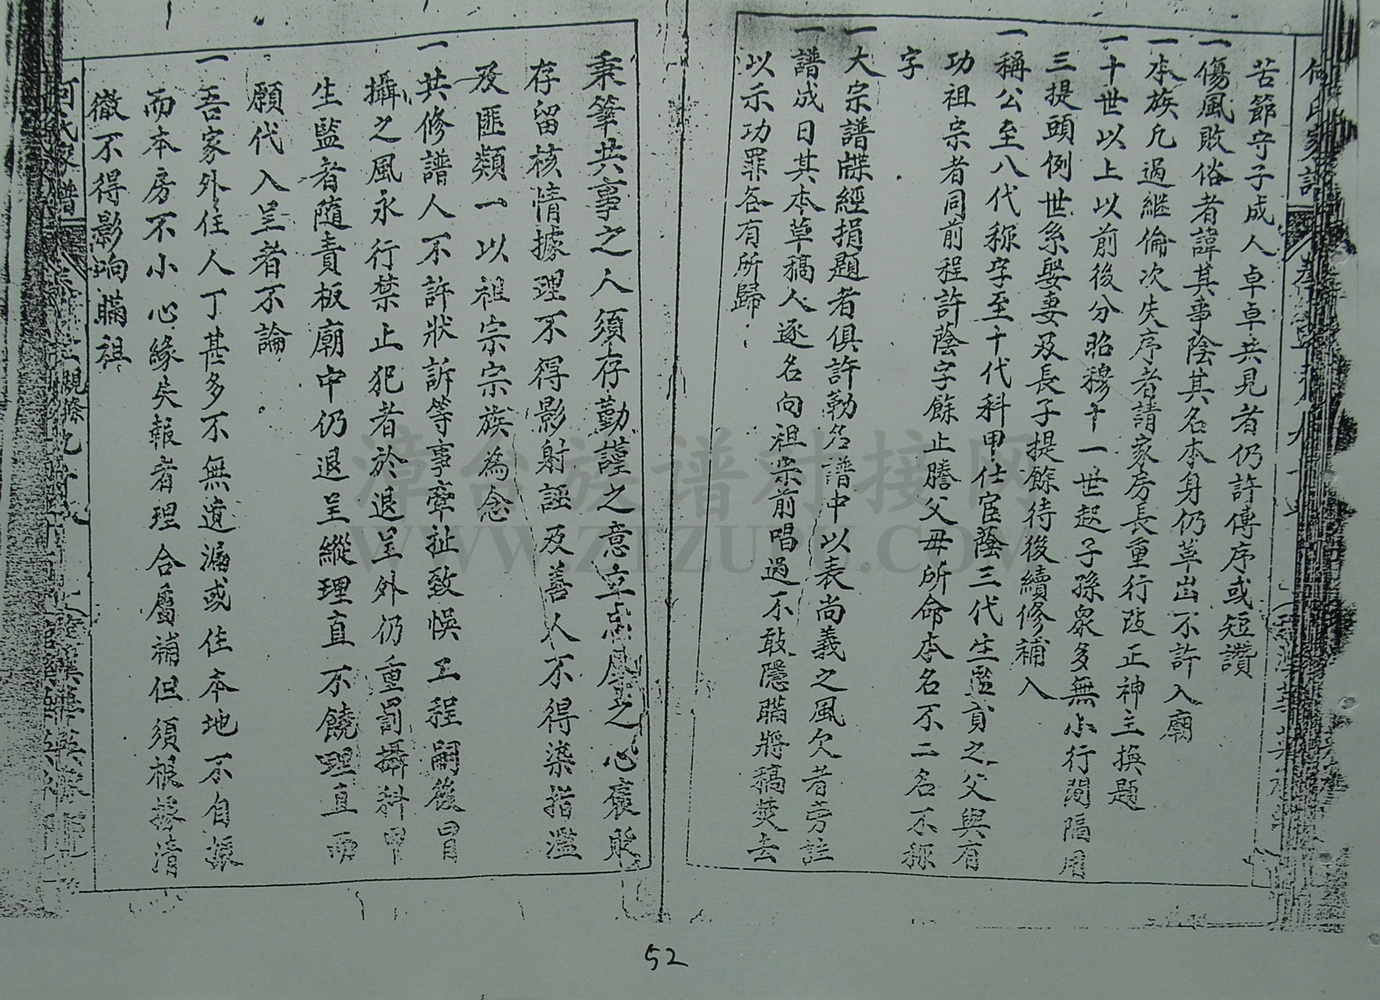 苦節守子成人卓卓共見者仍許傳序或短讚
一傷風敗俗者諱其事陰其名本身仍草出不許入廟
一本族凡過繼倫次失序者請家房長重行改正神主換題
一十世以上以前後分昭穆十一世起子孫衆多無小行間隔用
三提頭例世系娶妻及長子提餘待後續修補入
一稱公至八代称字至十代科甲仕宦蔭三代生監貢之父與有
功祖宗者同前程許蔭字餘止謄父母所命本名不二名不称
字
一大宗譜牒經捐題者俱許勒名譜中以表尚義之風欠者旁註
一譜成日其本草稿人逐名向祖宗前唱過不敢隱瞞將稿焚去
以示功罪各有所歸
秉筆共事之人須存勤謹之意立忠厚之心褒貶
存留核情據理不得影射誣及善人不得染指濫
及匪類一以祖宗宗族為念
一共修譜人不許狀訴等事牽扯致悞工程嗣後冒
攝之風永行禁止犯者於退呈外仍重罰攝科甲
生監者隨責板廟中仍退呈縱理直不饒理直而
願代入呈者不論
一吾家外住人丁甚多不無遺漏或住本地不自振
而本房不小心緣失報者理合屬補但須根據清
徹不得影响瞞祖
何氏家譜
漳台族谱对接网
WWW.ZTZUPU.COM
52